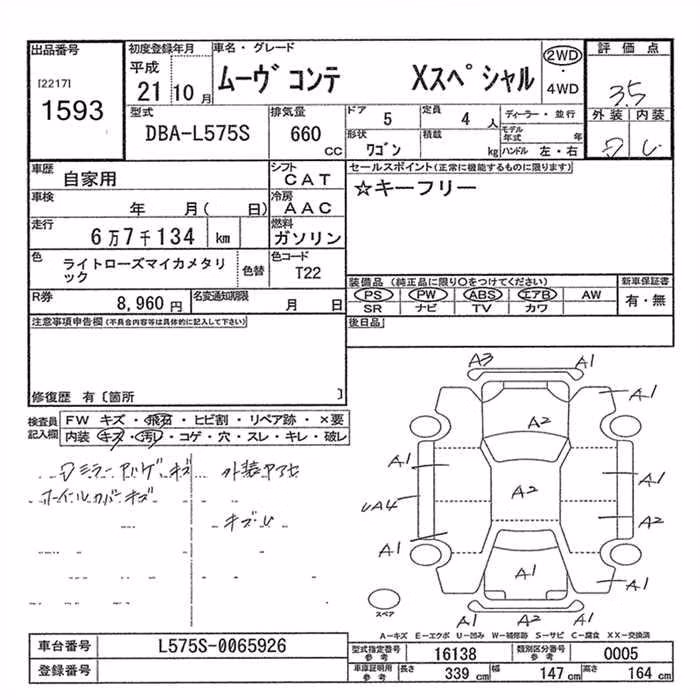 出品番号
[2217]
1593
初度登録年月
平成
21 10 月
車名・グレード
ムーヴ コンテ Xスペシャル
2WD
・
4WD
評価点
3.5
外装 内装
型式
DBA-L575S
排気量
660 cc
ドア 5
定員 4 人
形状 ワゴン
積載 kg
ディーラー・並行
モデル年式 年
ハンドル 左・右
車歴 自家用
シフト CAT
車検 年 月( 日)
冷房 AAC
走行 6万7千134 km
燃料 ガソリン
色 ライトローズマイカメタリック
色替
色コード T22
R券 8,960 円
名変通知期限 月 日
セールスポイント(正常に機能するものに限ります)
☆キーフリー
装備品 (純正品に限り〇をつけてください)
PS PW ABS エアB AW
SR ナビ TV カワ
新車保証書
有・無
後日品
注意事項申告欄(不具合内容等は具体的に記入して下さい)
修復歴 有〔箇所 〕
検査員記入欄
FW キズ・飛石・ヒビ割・リペア跡・×要
内装・キズ・汚レ・コゲ・穴・スレ・キレ・破レ
ホイルカバーキズ
キズU
A3 A1
A1
A2
A1 A2 A1
UA4 A2
A1
A1 A1
A1 A2 A1
スペア
A-キズ E-エクボ U-凹み W-補修跡 S-サビ C-腐食 XX-交換済
車台番号 L575S-0065926
登録番号
型式指定番号 参考 16138
類別区分番号 参考 0005
車庫証明用 参考 長さ 339 cm 幅 147 cm 高さ 164 cm